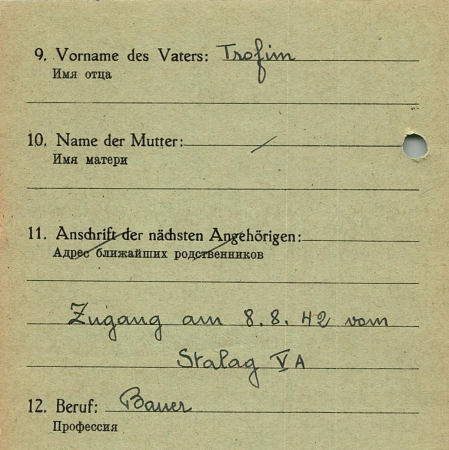 9. Vorname des Vaters: Trofim
Имя отца
10. Name der Mutter: /
Имя матери
11. Anschrift der nächsten Angehörigen:
Адрес ближайших родственников
Zugang am 8.8.42 vom
Stalag V A
12. Beruf: Bauer
Профессия